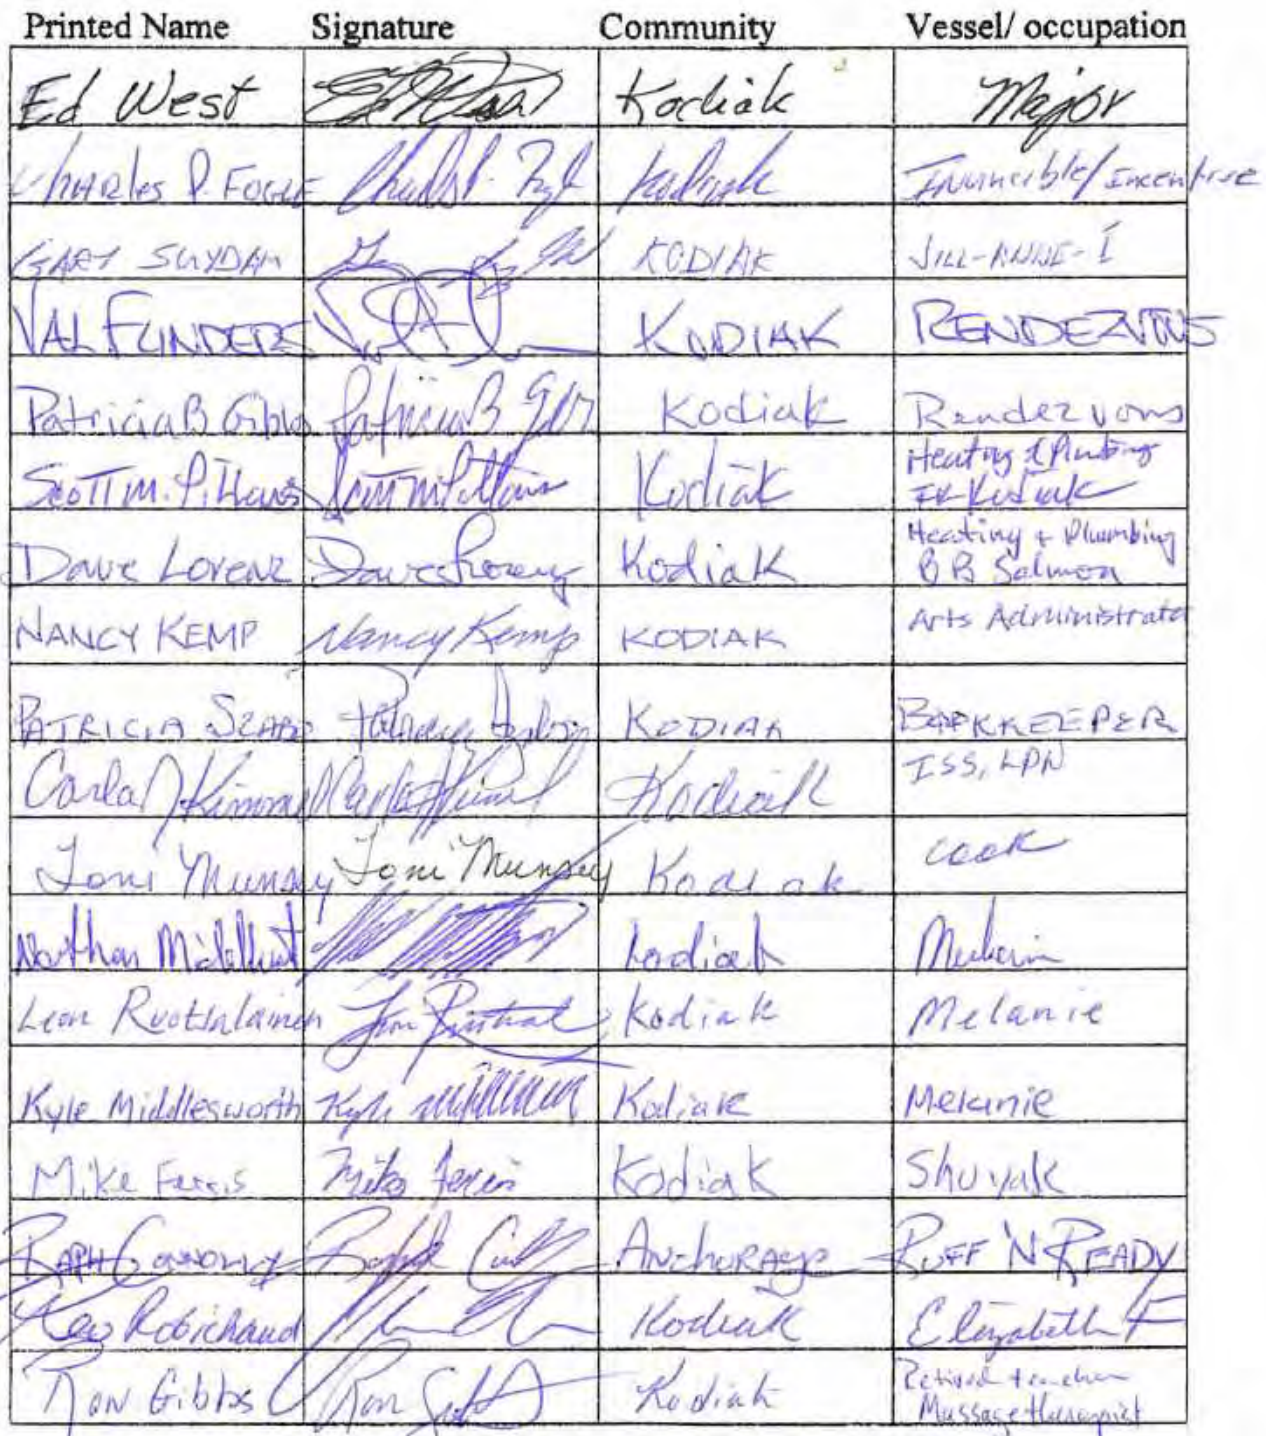 Printed Name Signature Community Vessel/ occupation
Ed West Ed West Kodiak Major
Charles P. Fogle Kodiak Invincible/Incentive
GARY SUYDAM KODIAK JILL-ANNE-I
VAL FLINDERS KODIAK RENDEZVOUS
Patricia B Gibbs Patricia B Kodiak Rendezvous
Heating & Plumbing
Scott M. Pillans Kodiak Kodiak
Heating + Plumbing
Dave Lorenz Dave Lorenz Kodiak BB Salmon
NANCY KEMP Nancy Kemp KODIAK Arts Administrator
PATRICIA SZABO KODIAK BOOKKEEPER
Carla J Kimmel Kodiak ISS, LPN
Toni Munsey Toni Munsey Kodiak cook
Nathan Kodiak
Leon Ruotsalainen Kodiak Melanie
Kyle Middlesworth Kyle Kodiak Melanie
Mike Ferris Mike Ferris Kodiak Shuyak
RAPH CONNOLLY Anchorage RUFF 'N READY
Leo Robichaud Kodiak Elizabeth F
Ron Gibbs Ron Kodiak Retired teacher
Massage therapist